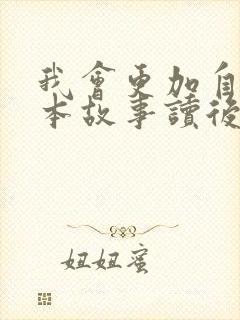 我會更加自
本故事讀後
妞妞蜜